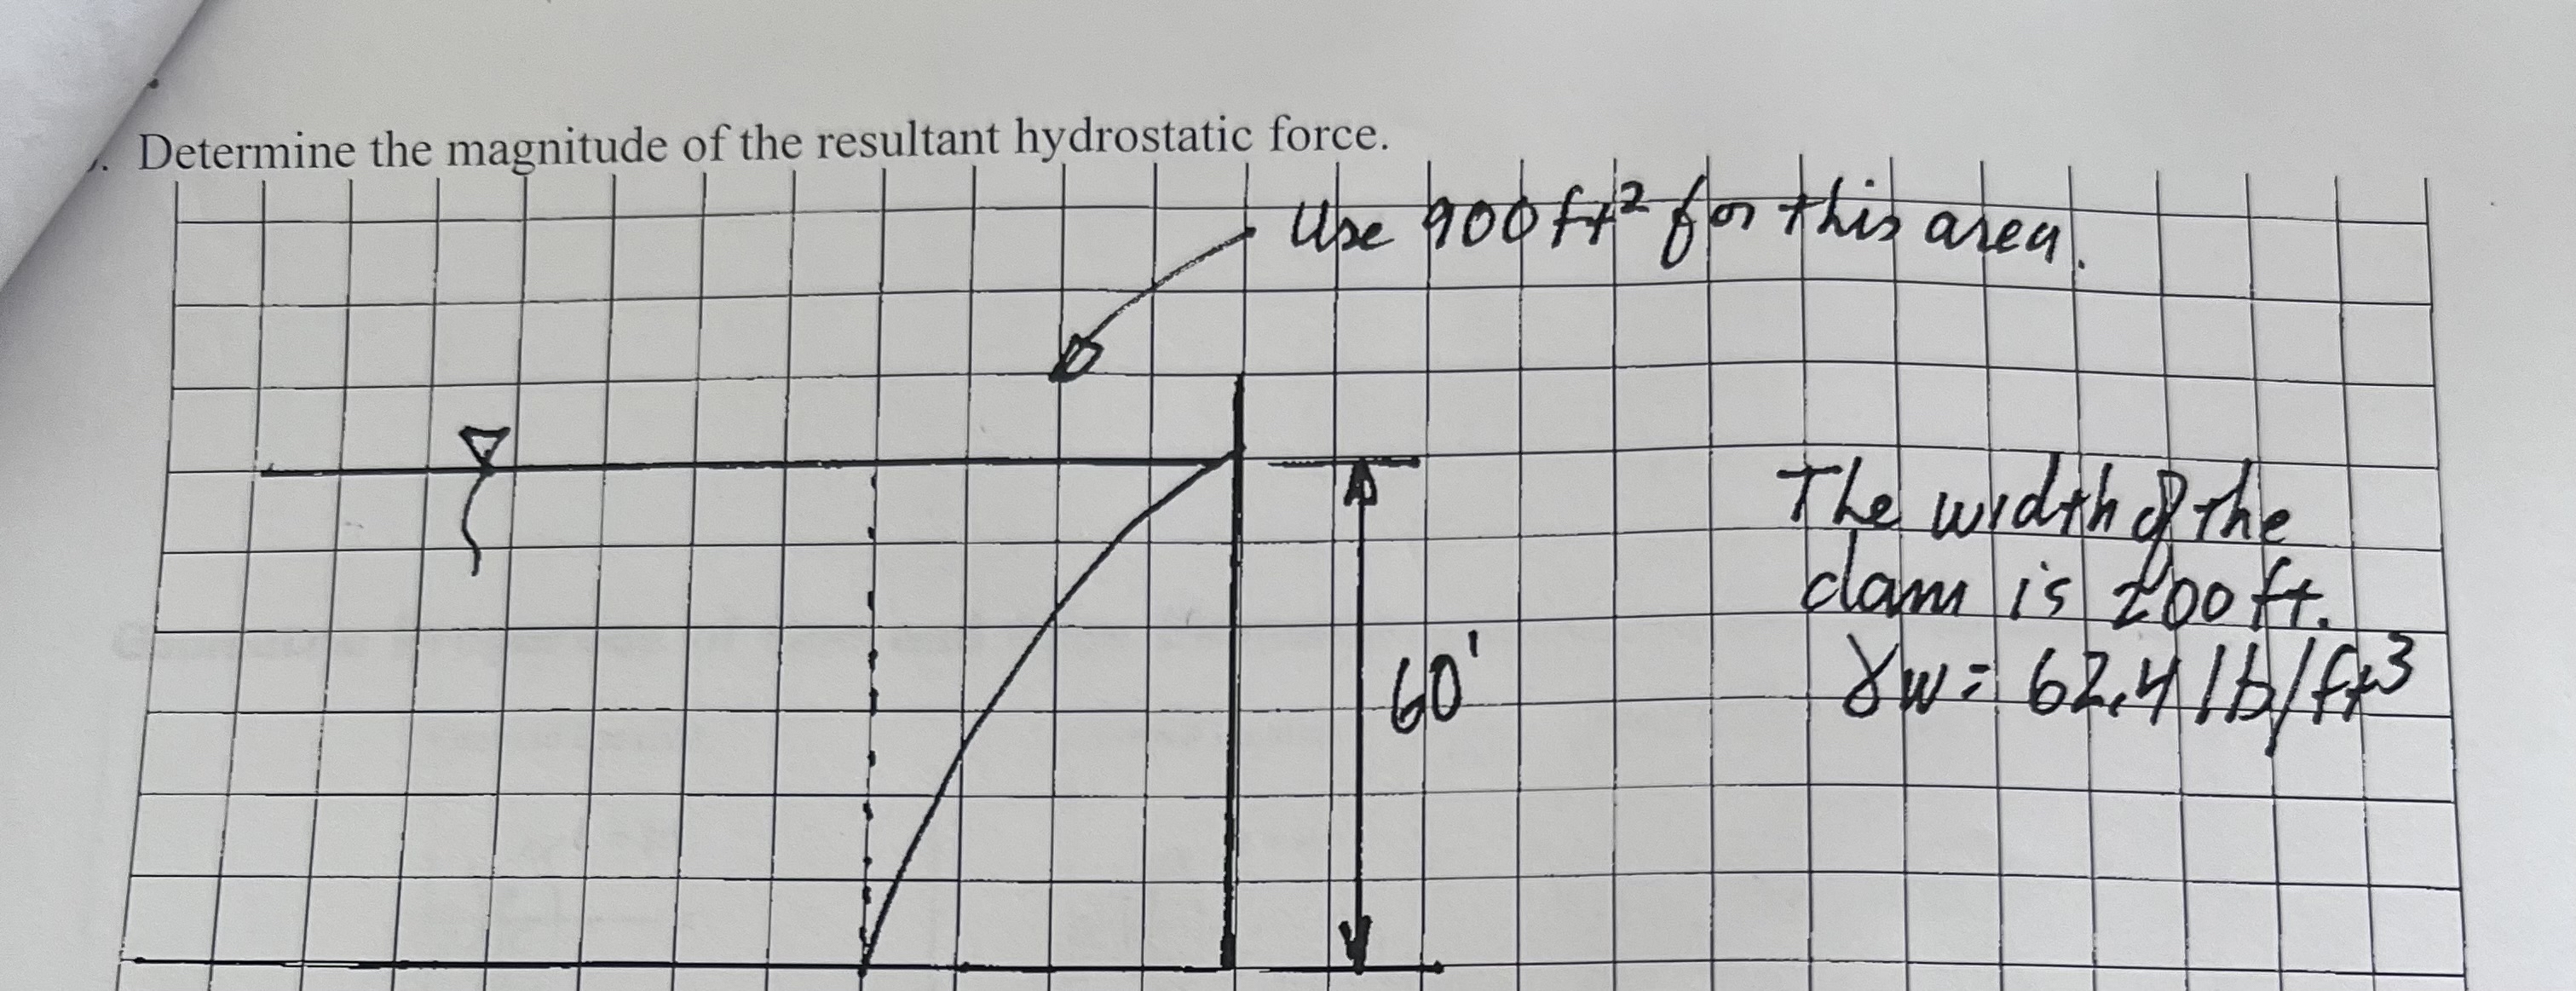 . Determine the magnitude of the resultant hydrostatic force.
Use 900 ft² for this area.
The width of the
dam is 200 ft.
60'
γw = 62.4 lb/ft³